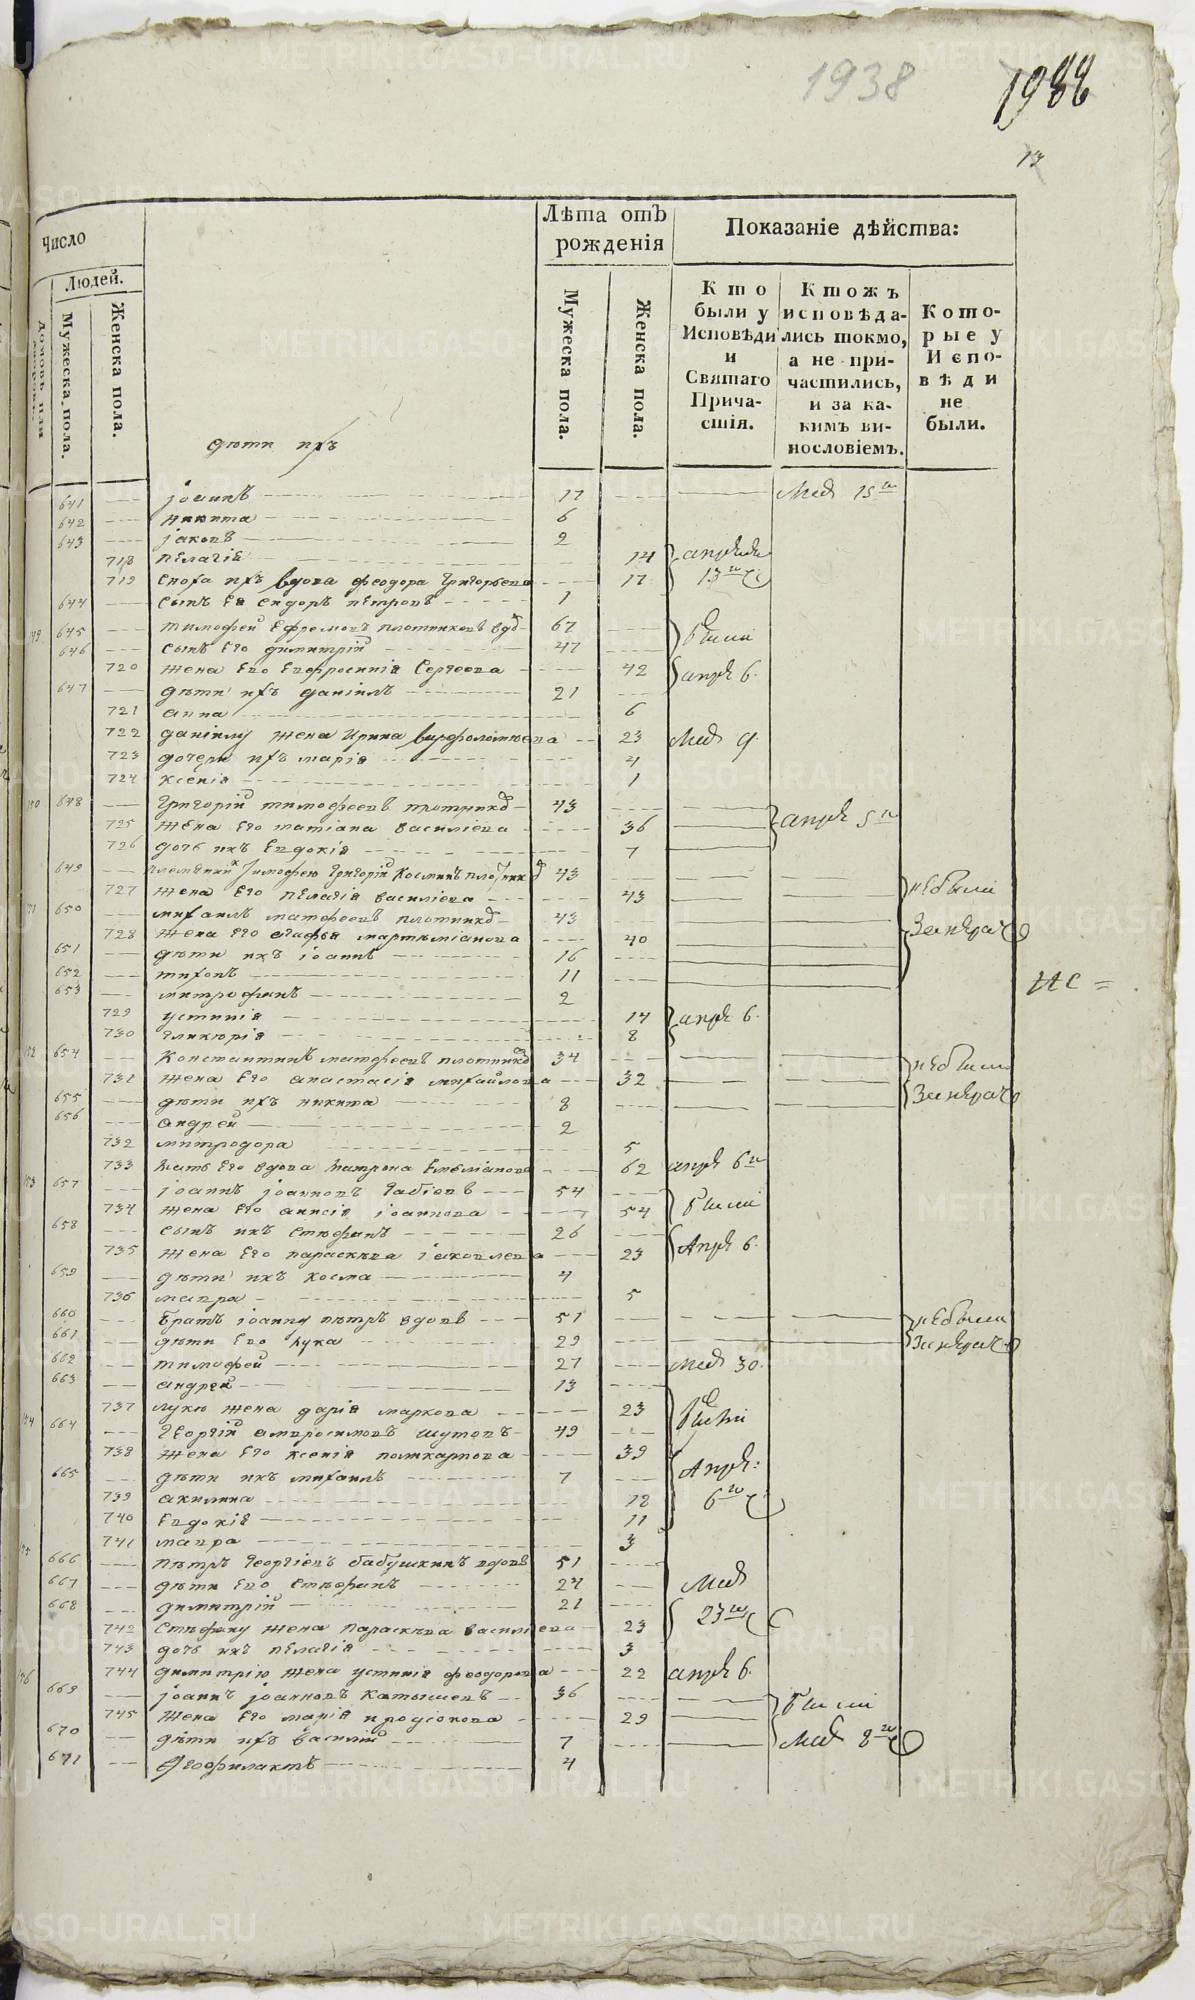 1938
1988
13
Число
Людей.
Мужеска пола.
Женска пола.
Лѣта отъ рожденія
Мужеска пола.
Женска пола.
Показаніе дѣйства:
Кто были у Исповѣди и Святаго Причастія.
Ктожъ исповѣдались токмо, а не причастились, и за какимъ винословіемъ.
Которые у Исповѣди не были.
дѣти ихъ
641 Іоаннъ 17
642 Никита 6
643 Іаковъ 2
718 Пелагія 14
719 Сноха ихъ вдова Феодора Григорьева 17
644 Сынъ ея Сидоръ Петровъ 1
645 Тимофей Ефремовъ Плотниковъ вдовъ 67
646 Сынъ его Димитрій 47
720 Жена его Евфросинія Сергеева 42
647 дѣти ихъ Даніилъ 21
721 Анна 6
722 Даніилу жена Ирина Варфоломѣева 23
723 дочери ихъ Марія 4
724 Ксенія 1
648 Григорій Тимофеевъ Плотников 43
725 Жена его Татіана Василіева 36
726 дочь ихъ Евдокія 7
649 Племянникъ Тимофею Григорій Косминъ Плотников 43
727 Жена его Пелагія Василіева 43
650 Михаилъ Матфеевъ Плотников 43
728 Жена его Агафья Мартеміанова 40
651 дѣти ихъ Іоаннъ 16
652 Тихонъ 11
653 Митрофанъ 2
729 Устинія 14
730 Гликерія 8
654 Константинъ Матфеевъ Плотников 34
731 Жена его Анастасія Михайлова 32
655 дѣти ихъ Никита 8
656 Андрей 2
732 Митродора 5
733 Мать его вдова Матрона Емеліанова 62
657 Іоаннъ Іоанновъ 54
734 Жена его Анисія Іоаннова 54
658 Сынъ ихъ Стефанъ 26
735 Жена его Параскѣва Іаковлева 23
659 дѣти ихъ Косма 4
736 Мавра 5
660 Братъ Іоанну Петръ вдовъ 51
661 дѣти его Лука 29
662 Тимофей 27
663 Андрей 13
737 Луки жена Дарія Маркова 23
664 Георгій Амвросимовъ Шутовъ 49
738 Жена его Ксенія Поликарпова 39
665 дѣти ихъ Михаилъ 7
739 Акилина 12
740 Евдокія 11
741 Мавра 3
666 Петръ Георгіевъ Бабушкинъ вдовъ 51
667 дѣти его Стефанъ 24
668 Димитрій 21
742 Стефану жена Параскѣва Василіева 23
743 дочь ихъ Пелагія 3
744 Димитрію жена Устинія Феодорова 22
669 Іоаннъ Іоанновъ Катышевъ 36
745 Жена его Марія 29
670 дѣти ихъ Василій 7
671 Феофилактъ 4
Маія 15го
апрѣля 13го
были апрѣ 6.
Маія 9.
апрѣ 5го
не были
апрѣ 6.
не были
апрѣ 6го
были Апрѣ 6.
не были
Маія 30.
были Апрѣ: 6го
Маія 23го
апрѣ 6.
были Маія 8го
ИС =
METRIKI.GASO-URAL.RU